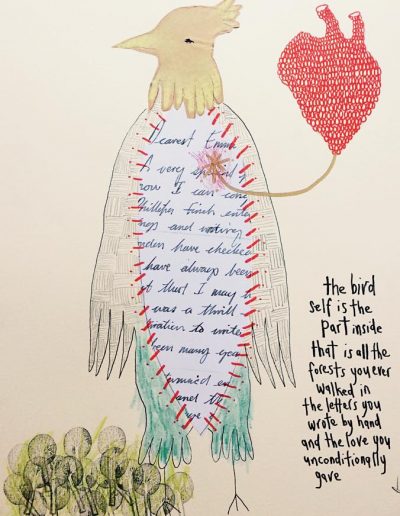 Dearest Emma
A very special
now I can
Phillips finch
and writing
have checked
have always been
that I may
was a thrill
to write
been many years
and the
the bird
self is the
part inside
that is all the
forests you ever
walked in
the letters you
wrote by hand
and the love you
unconditionally
gave